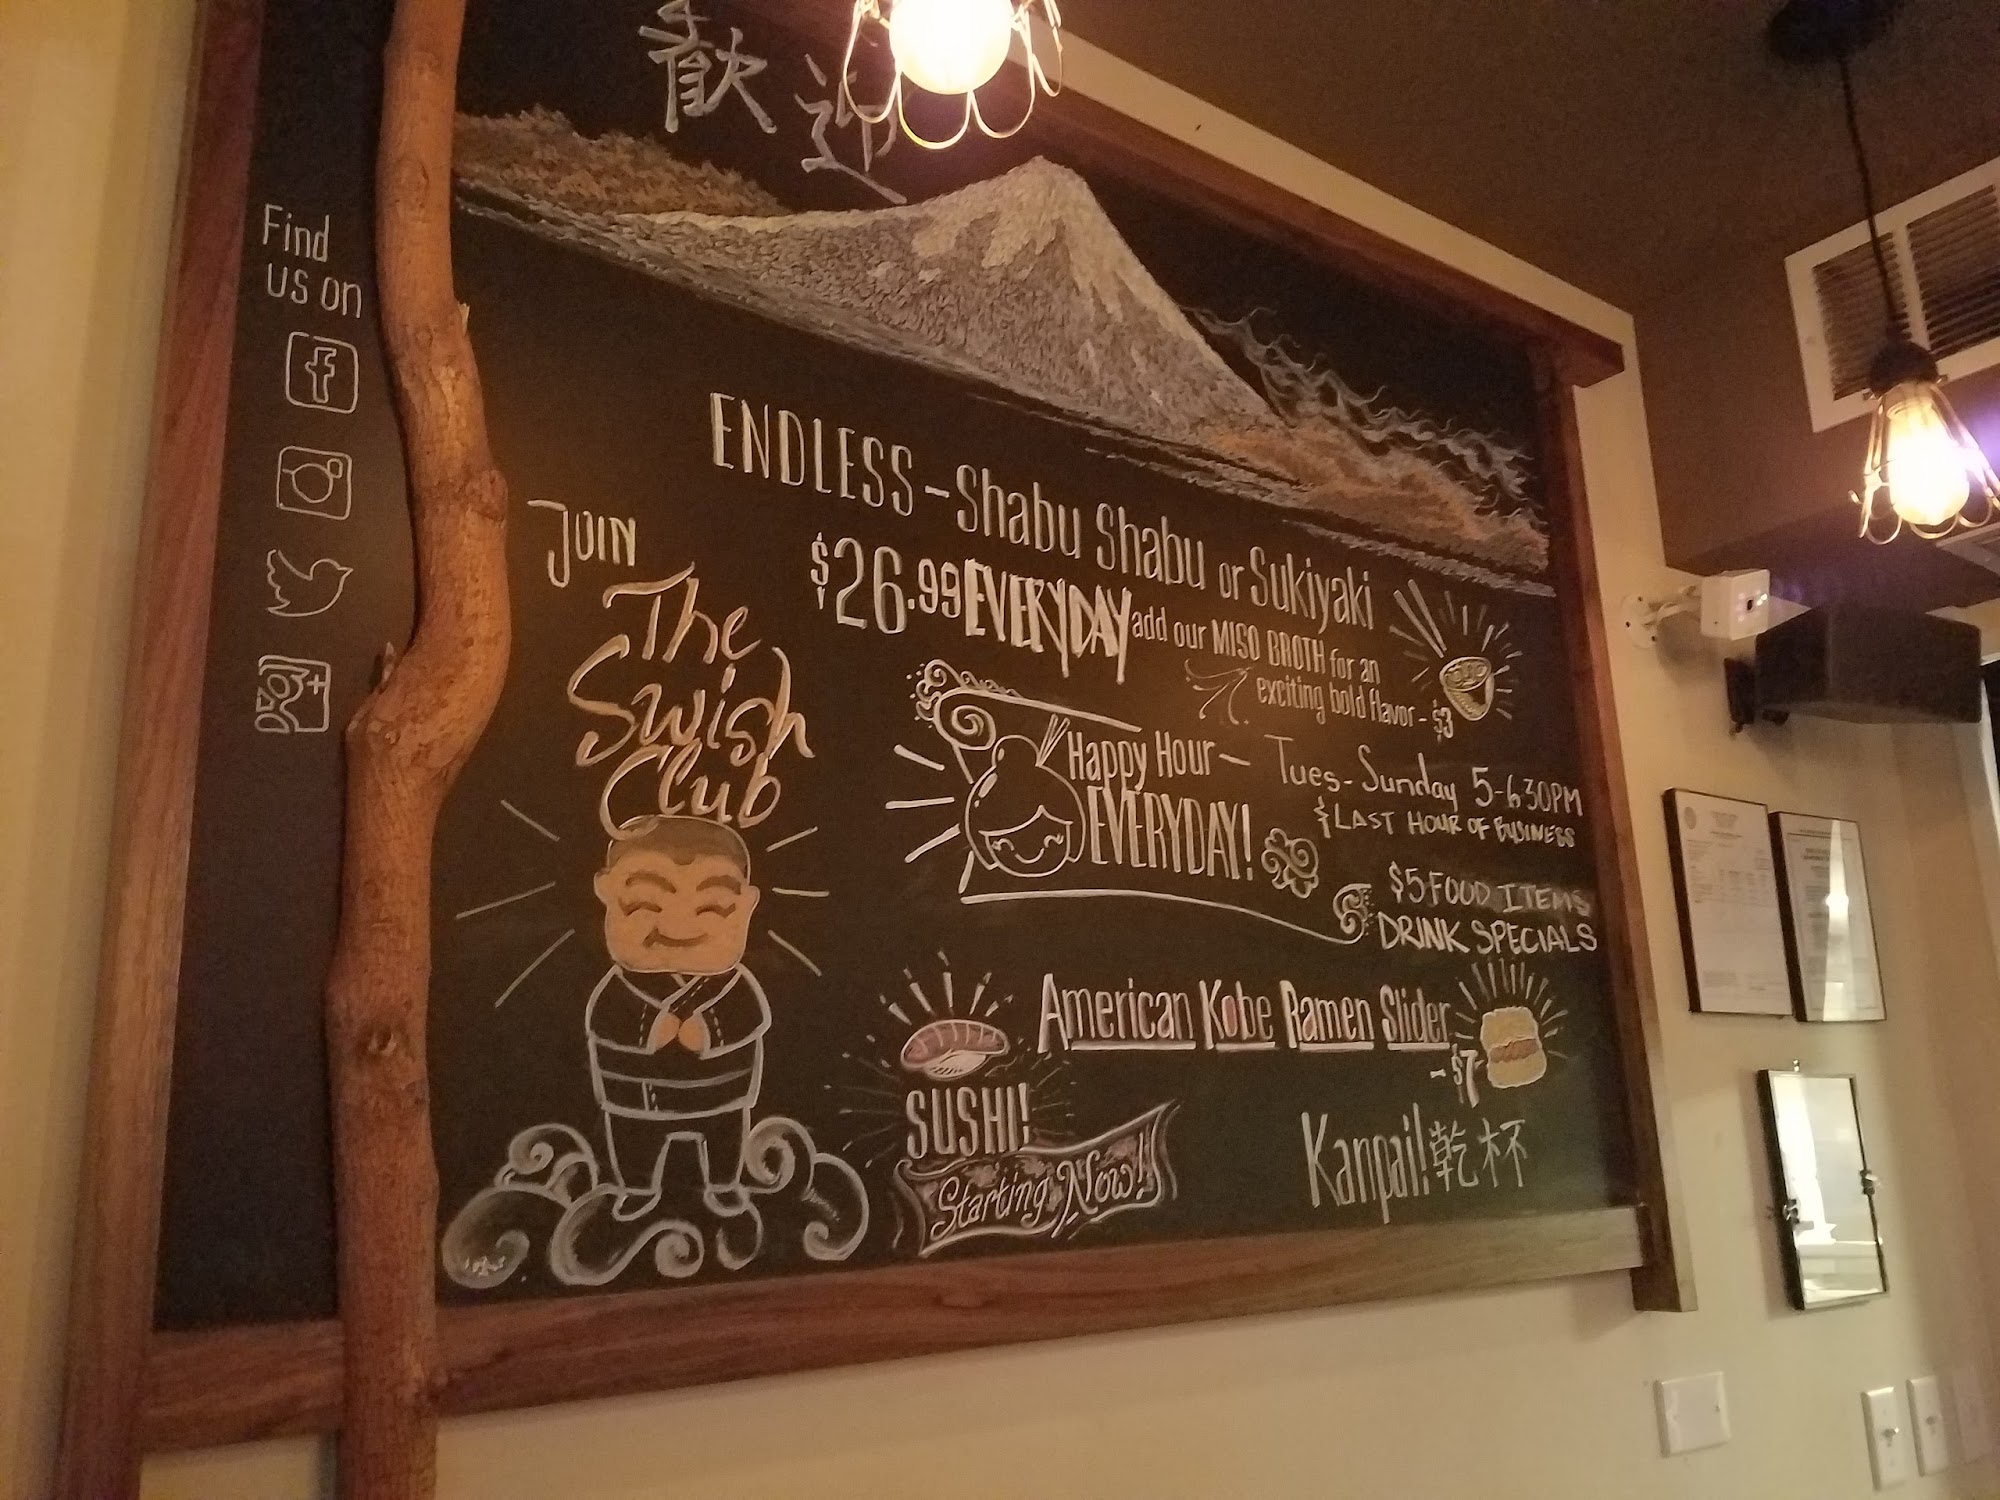 歡迎
Find
us on
f
g+
JOIN
The
Swish
Club
ENDLESS - Shabu Shabu or Sukiyaki
$26.99 EVERYDAY add our MISO BROTH for an
exciting bold flavor - $3
Happy Hour -
EVERYDAY!
Tues - Sunday 5-630PM
& LAST HOUR OF BUSINESS
$5 FOOD ITEMS
DRINK SPECIALS
American Kobe Ramen Slider
- $7
SUSHI!
Starting Now!!
Kanpai! 乾杯